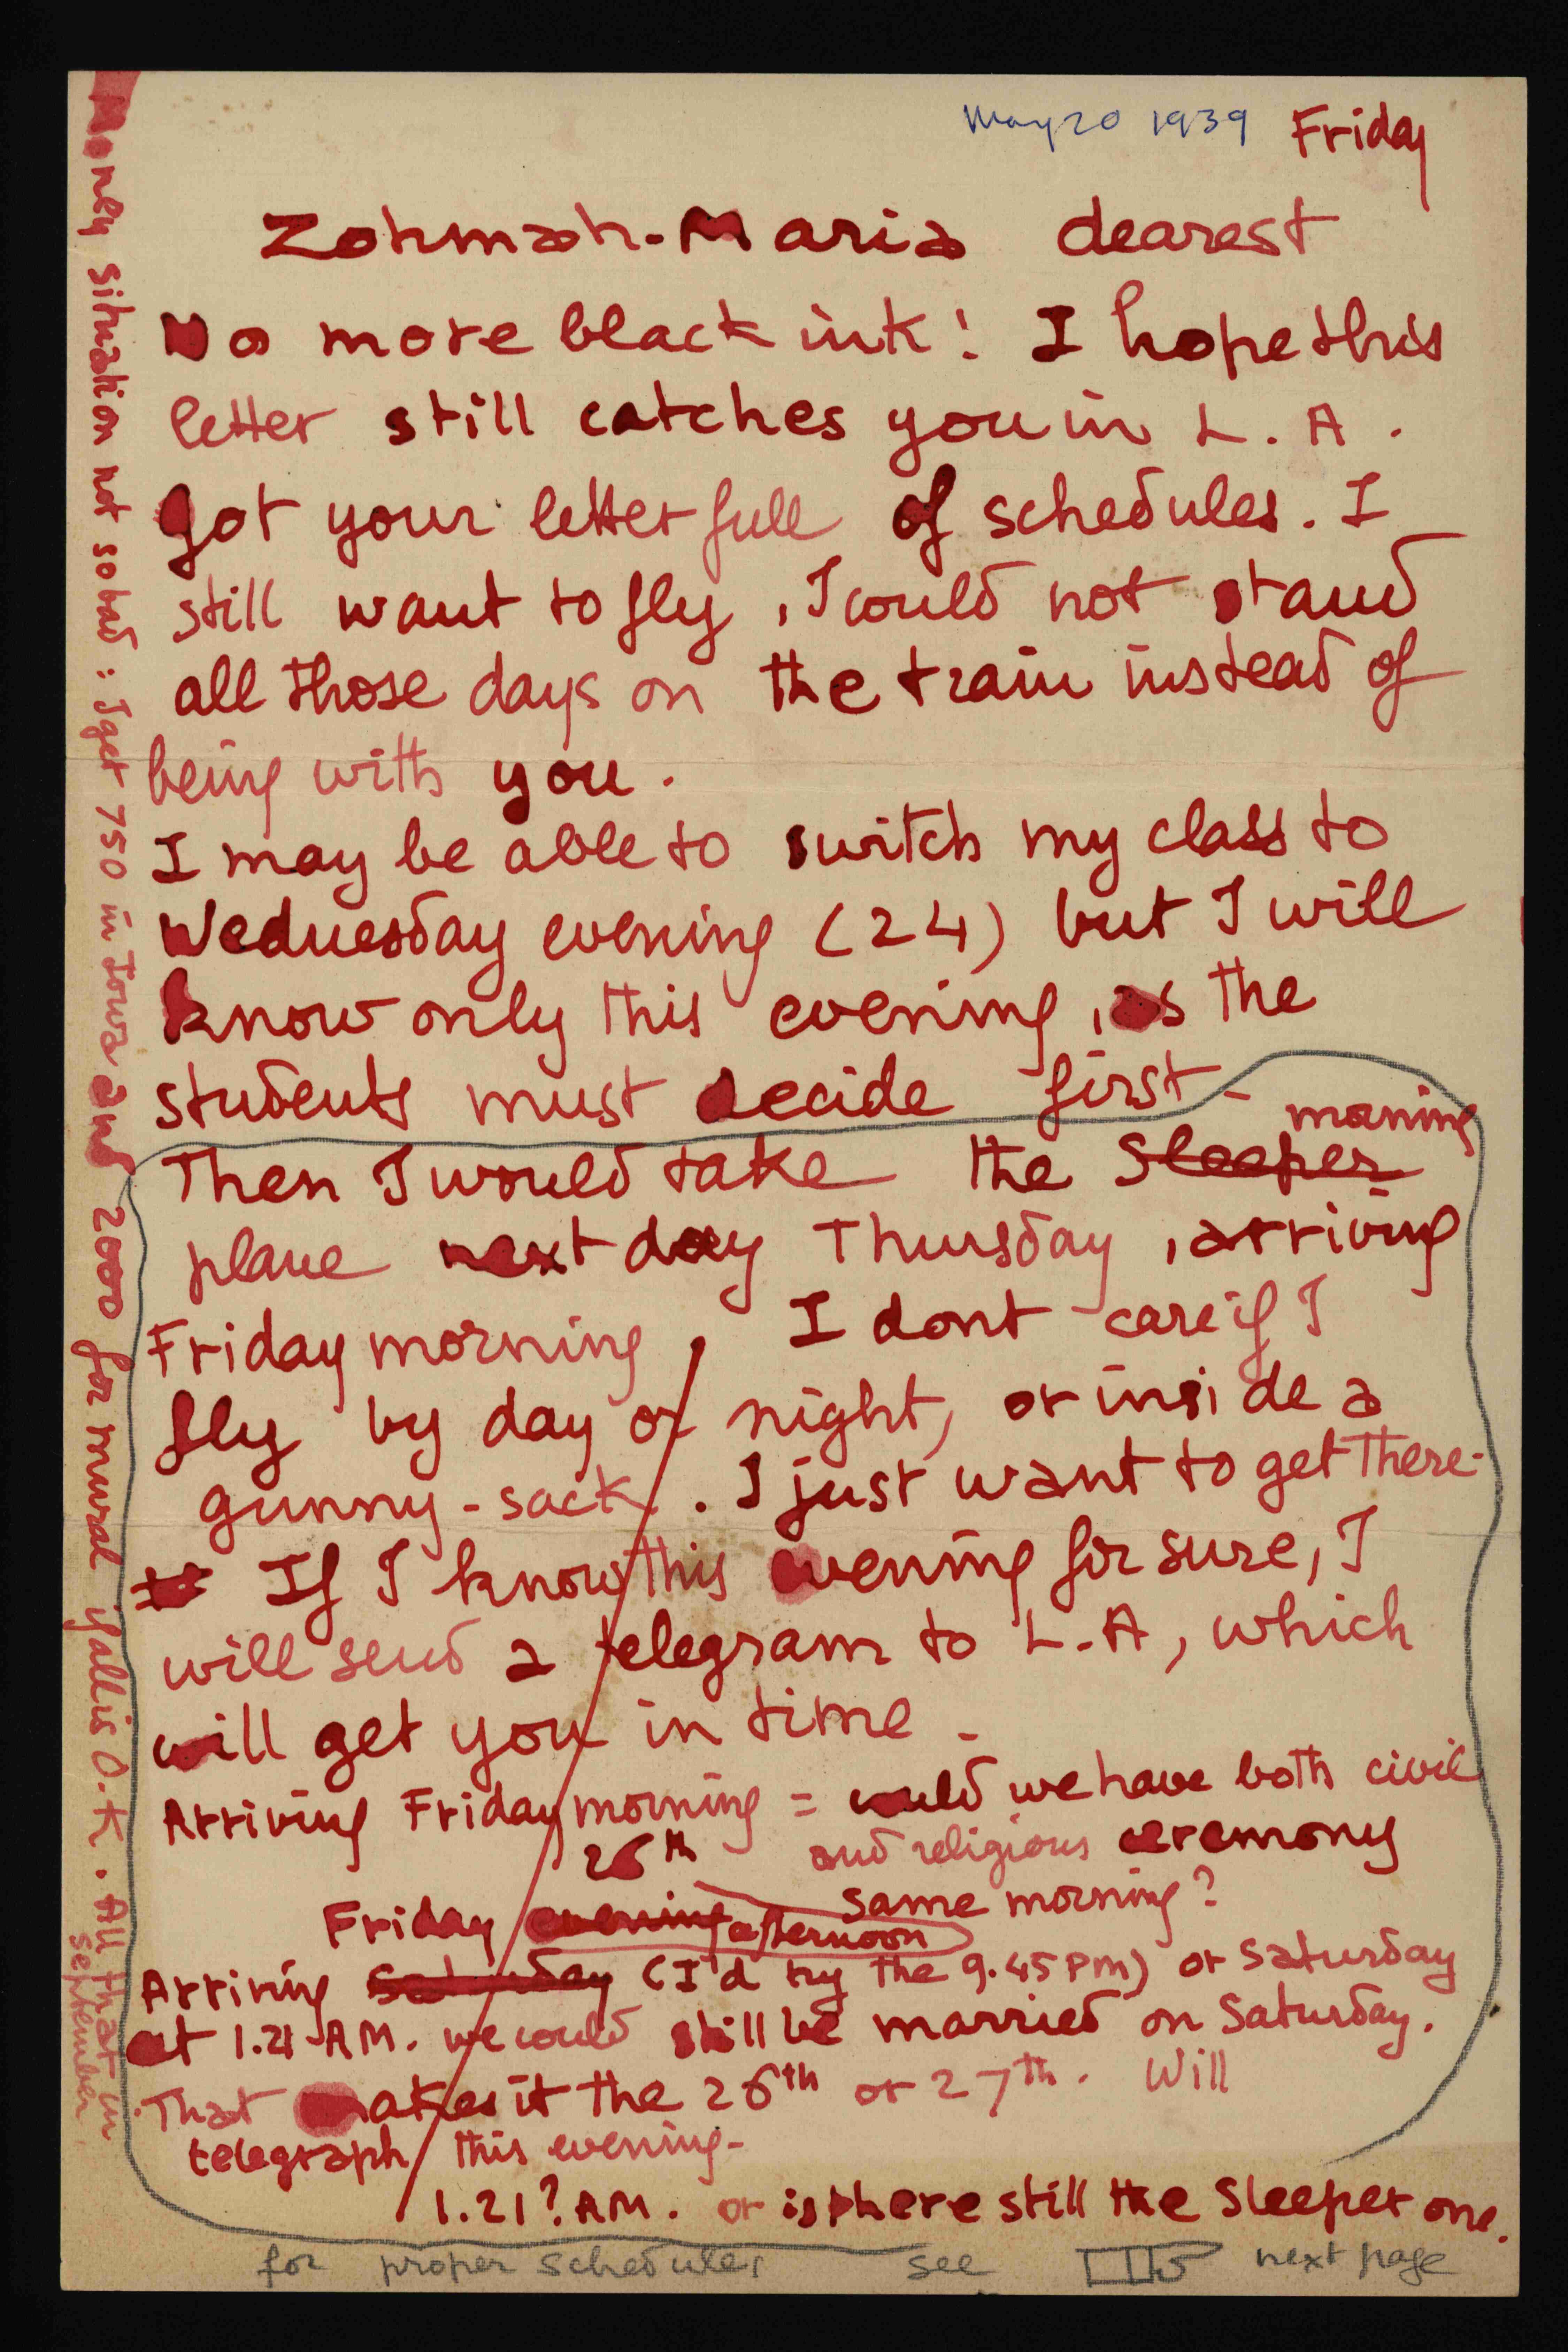 May 20 1939 Friday
Zohmah-Maria dearest
No more black ink! I hope this
letter still catches you in L. A.
Got your letter full of schedules. I
still want to fly, I could not stand
all those days on the train instead of
being with you.
I may be able to switch my class to
Wednesday evening (24) but I will
know only this evening, as the
students must decide first -
morning
Then I would take the Sleeper
plane next day Thursday, arriving
Friday morning. I dont care if I
fly by day or night, or inside a
gunny-sack. I just want to get there-
If I know this evening for sure, I
will send a telegram to L.A, which
will get you in time -
Arriving Friday morning = could we have both civil
26th and religious ceremony
same morning?
Friday evening afternoon
Arriving Saturday (I'd try the 9.45 PM) or Saturday
at 1.21 AM. we could still be married on Saturday.
That makes it the 26th or 27th. Will
telegraph this evening-
1.21? AM. or is there still the Sleeper one.
for proper schedules see next page
Money situation not so bad: I get 750 in Iowa and 2000 for mural if all is O.K. All that in
september